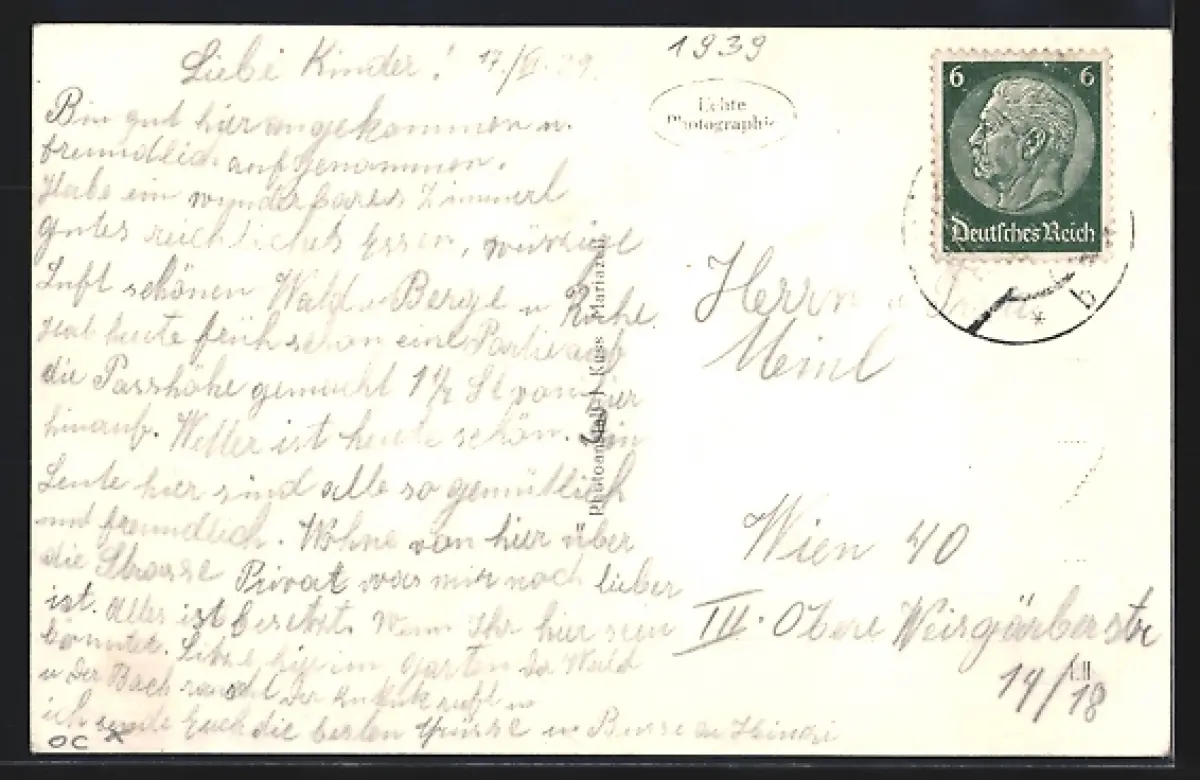 Liebe Kinder! 17./VI. 39.
Bin gut hier angekommen u.
freundlich aufgenommen.
Habe ein wunderbares Zimmerl
gutes reichliches Essen, würzige
Luft schönen Wald u Berge u Ruhe.
Hab heute früh schon eine Partie auf
die Passhöhe gemacht 1 1/2 St von hier
hinauf. Wetter ist heute schön.
Leute hier sind alle so gemütlich
und freundlich. Wohne von hier über
die Strasse Privat was mir noch lieber
ist. Alles ist besetzt. Wenn Ihr hier sein
könntet. Sitze hier im Garten der Wald
u der Bach rauscht der Kukuk ruft u
ich sende Euch die besten Grüsse u Busse
OC X
1939
Echte
Photographie
Photoanstalt J. Kuss Mariazell
6 6
Deutsches Reich
* b
Herrn u
Meinl
Wien 40
III. Obere Weisgärberstr
14/18